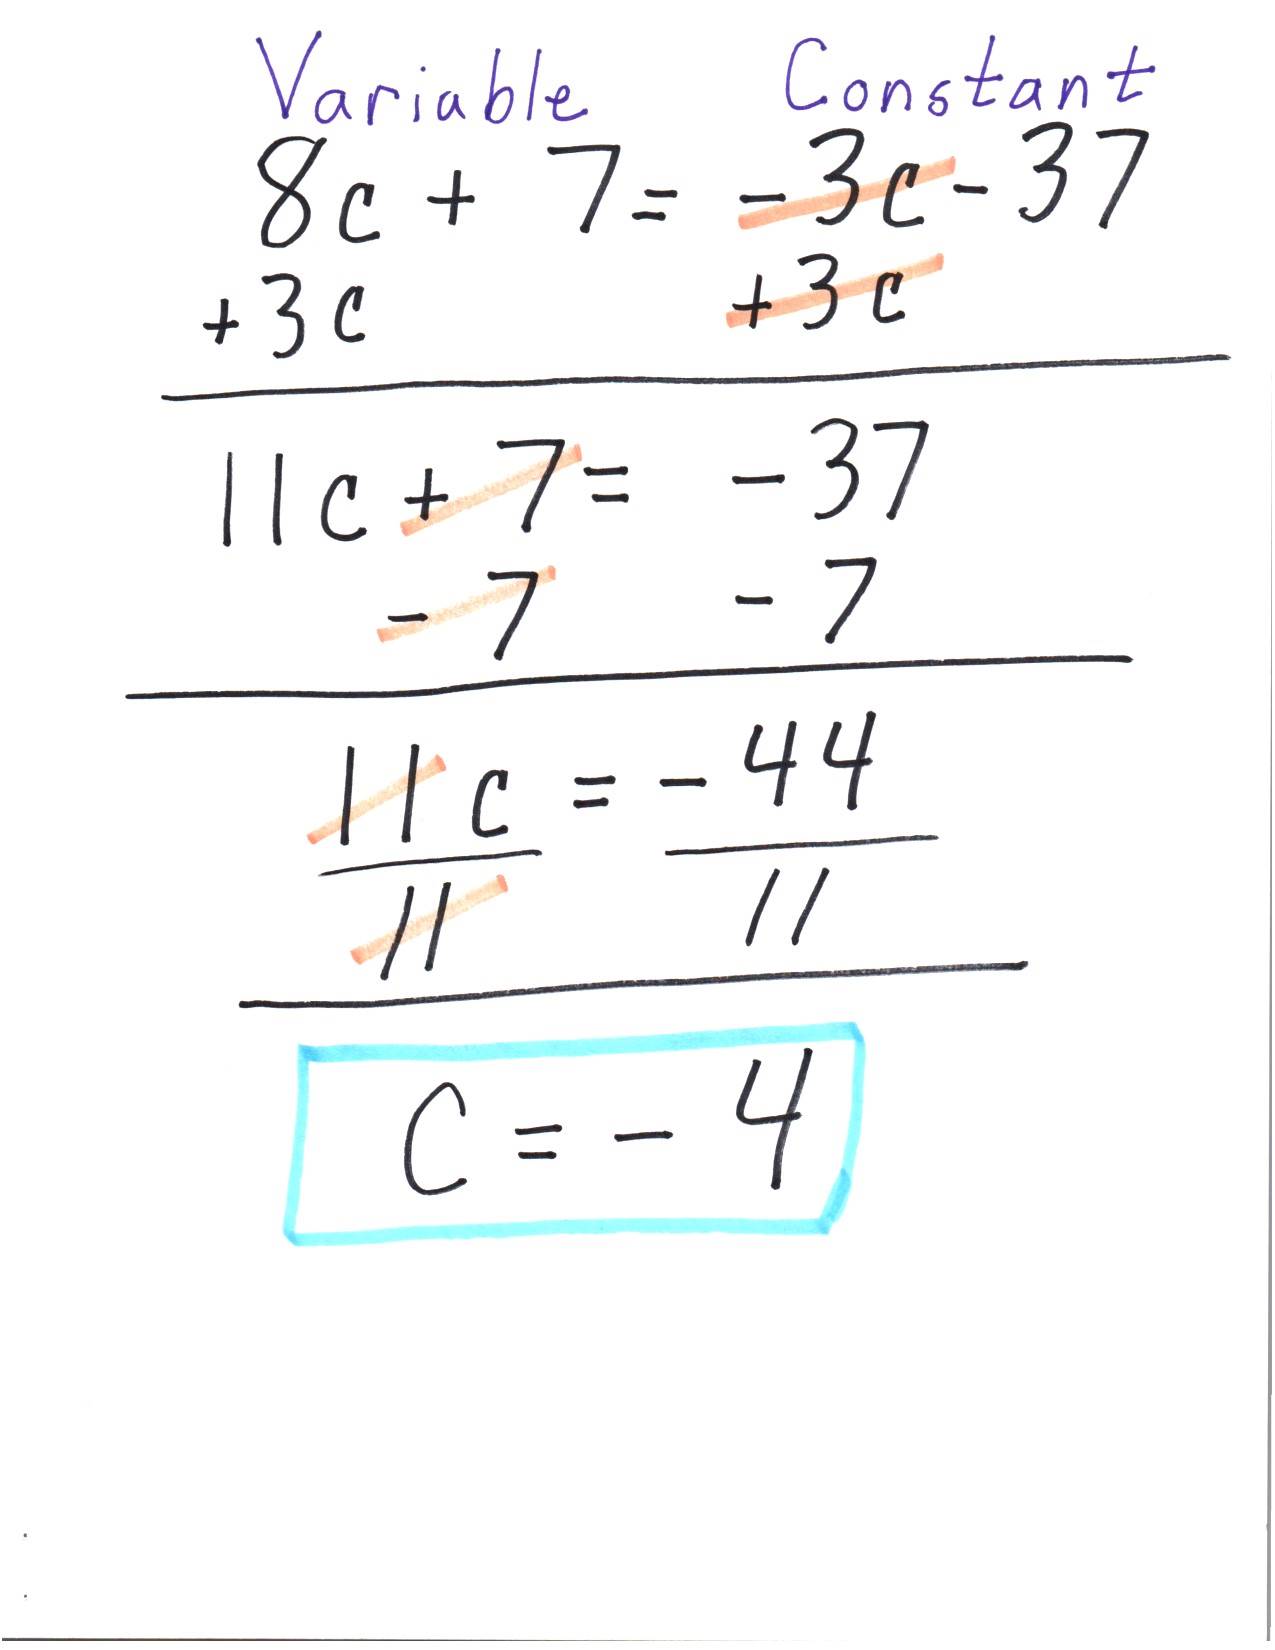 Variable Constant
8c + 7 = -3c - 37
+3c +3c
11c + 7 = -37
-7 -7
11c = -44
11 11
C = -4